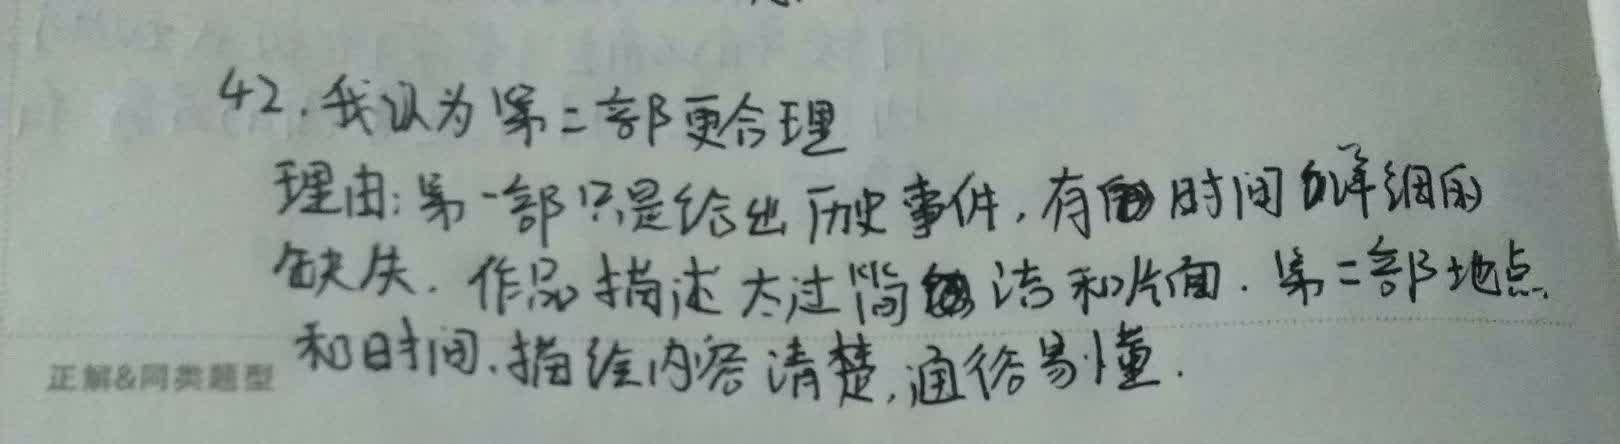 42.我认为第二部更合理
理由:第一部只是给出历史事件,有时间详细的
缺失.作品描述太过简洁和片面.第二部地点
和时间、描绘内容清楚,通俗易懂.
正解&同类题型